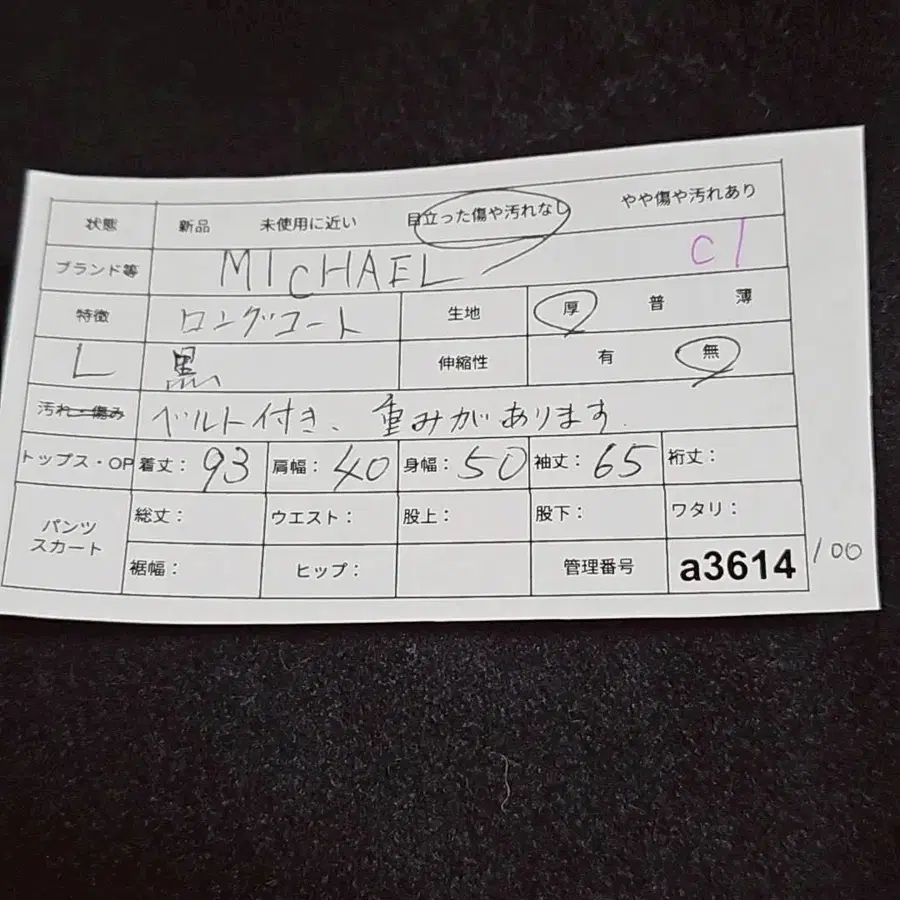 状態 新品 未使用に近い 目立った傷や汚れなし やや傷や汚れあり
ブランド等 MICHAEL c1
特徴 ロングコート 生地 厚 普 薄
L 黒 伸縮性 有 無
汚れ・傷み ベルト付き、重みがあります.
トップス・OP 着丈: 93 肩幅: 40 身幅: 50 袖丈: 65 裄丈:
パンツ 総丈: ウエスト: 股上: 股下: ワタリ:
スカート
裾幅: ヒップ: 管理番号 a3614 100